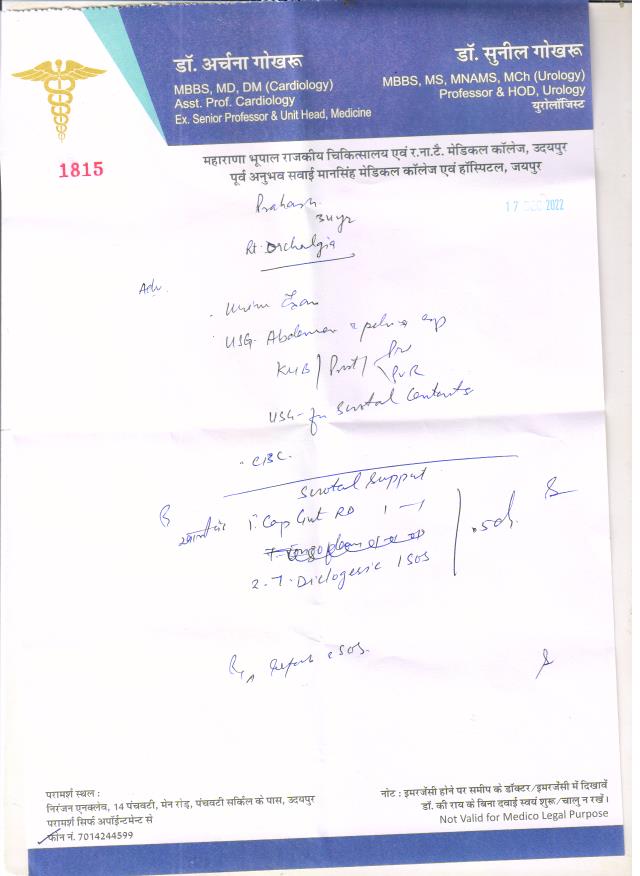 डॉ. अर्चना गोखरू
MBBS, MD, DM (Cardiology)
Asst. Prof. Cardiology
Ex. Senior Professor & Unit Head, Medicine
डॉ. सुनील गोखरू
MBBS, MS, MNAMS, MCh (Urology)
Professor & HOD, Urology
युरोलॉजिस्ट
1815
महाराणा भूपाल राजकीय चिकित्सालय एवं र.ना.टै. मेडिकल कॉलेज, उदयपुर
पूर्व अनुभव सवाई मानसिंह मेडिकल कॉलेज एवं हॉस्पिटल, जयपुर
17 DEC 2022
Prakash
34 yr
Rt. Orchalgia
Adv.
Urine
USG. Abdomen & pelvis
KUB / Prost / Pre
PVR
USG - for Scrotal Contents
CBC.
Scrotal Support
1. Cap 1 - 1
2. T. Diclogesic 1 SOS
5d
SOS
परामर्श स्थल :
निरंजन एनक्लेव, 14 पंचवटी, मेन रोड़, पंचवटी सर्किल के पास, उदयपुर
परामर्श सिर्फ अपॉईन्टमेन्ट से
फोन नं. 7014244599
नोट : इमरजेंसी होने पर समीप के डॉक्टर/इमरजेंसी में दिखावें
डॉ. की राय के बिना दवाई स्वयं शुरू/चालु न रखें।
Not Valid for Medico Legal Purpose